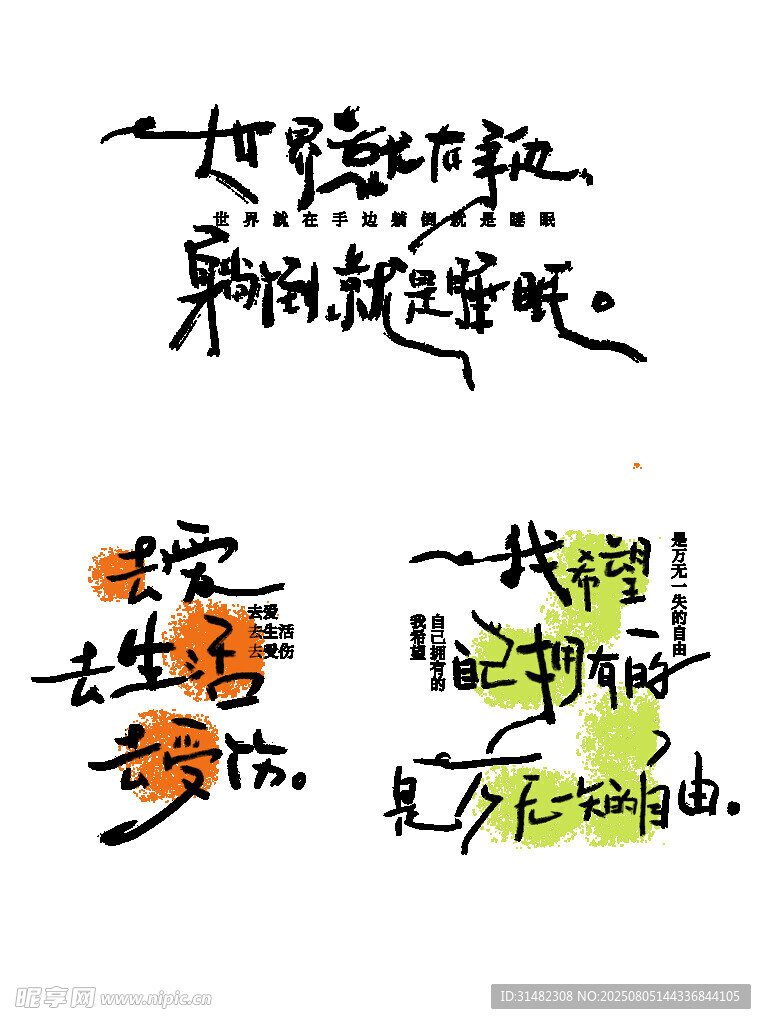 世界就在手边、
世界就在手边躺倒就是睡眠
躺倒就是睡眠。
去爱
去生活
去受伤。
去爱
去生活
去受伤
我希望
自己拥有的
是万无一失的自由。
我希望
自己拥有的
是万无一失的自由
昵享网 www.nipic.cn
ID:31482308 NO:20250805144336844105